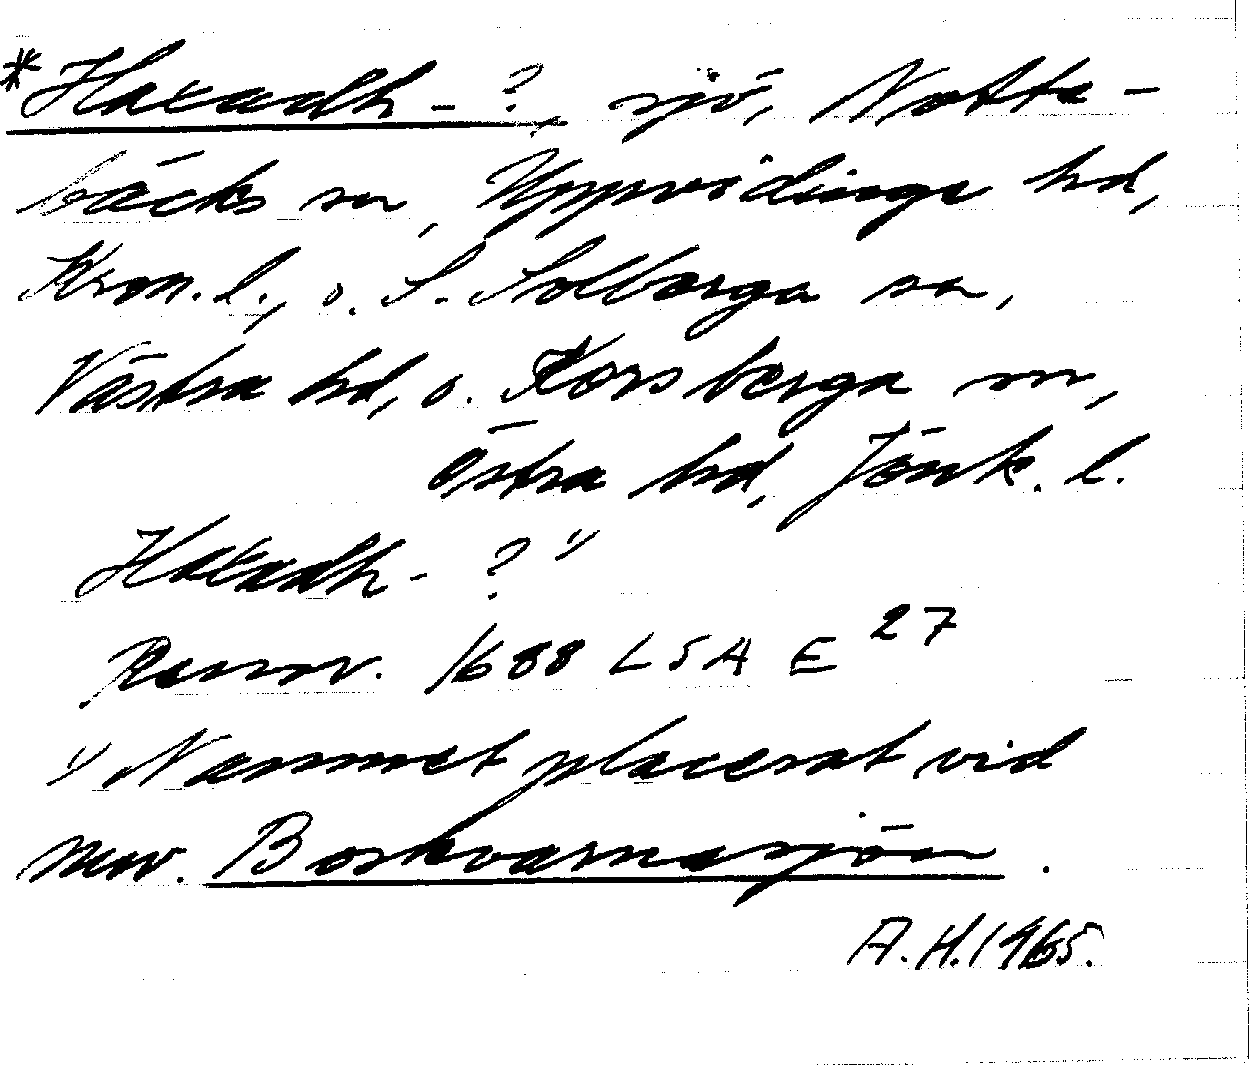 *Haxadh-?, sjö, Notte-
bäcks sn, Uppvidinge hd,
Kron. l., o. S. Solberga sn,
Västra hd, o. Korsberga sn,
Östra hd, Jönk. l.
Haxadh- ? "
Rannv. 1688 LSA E 27
" Namnet placerat vid
nuv. Boskvarnasjön.
A.H. 1965.